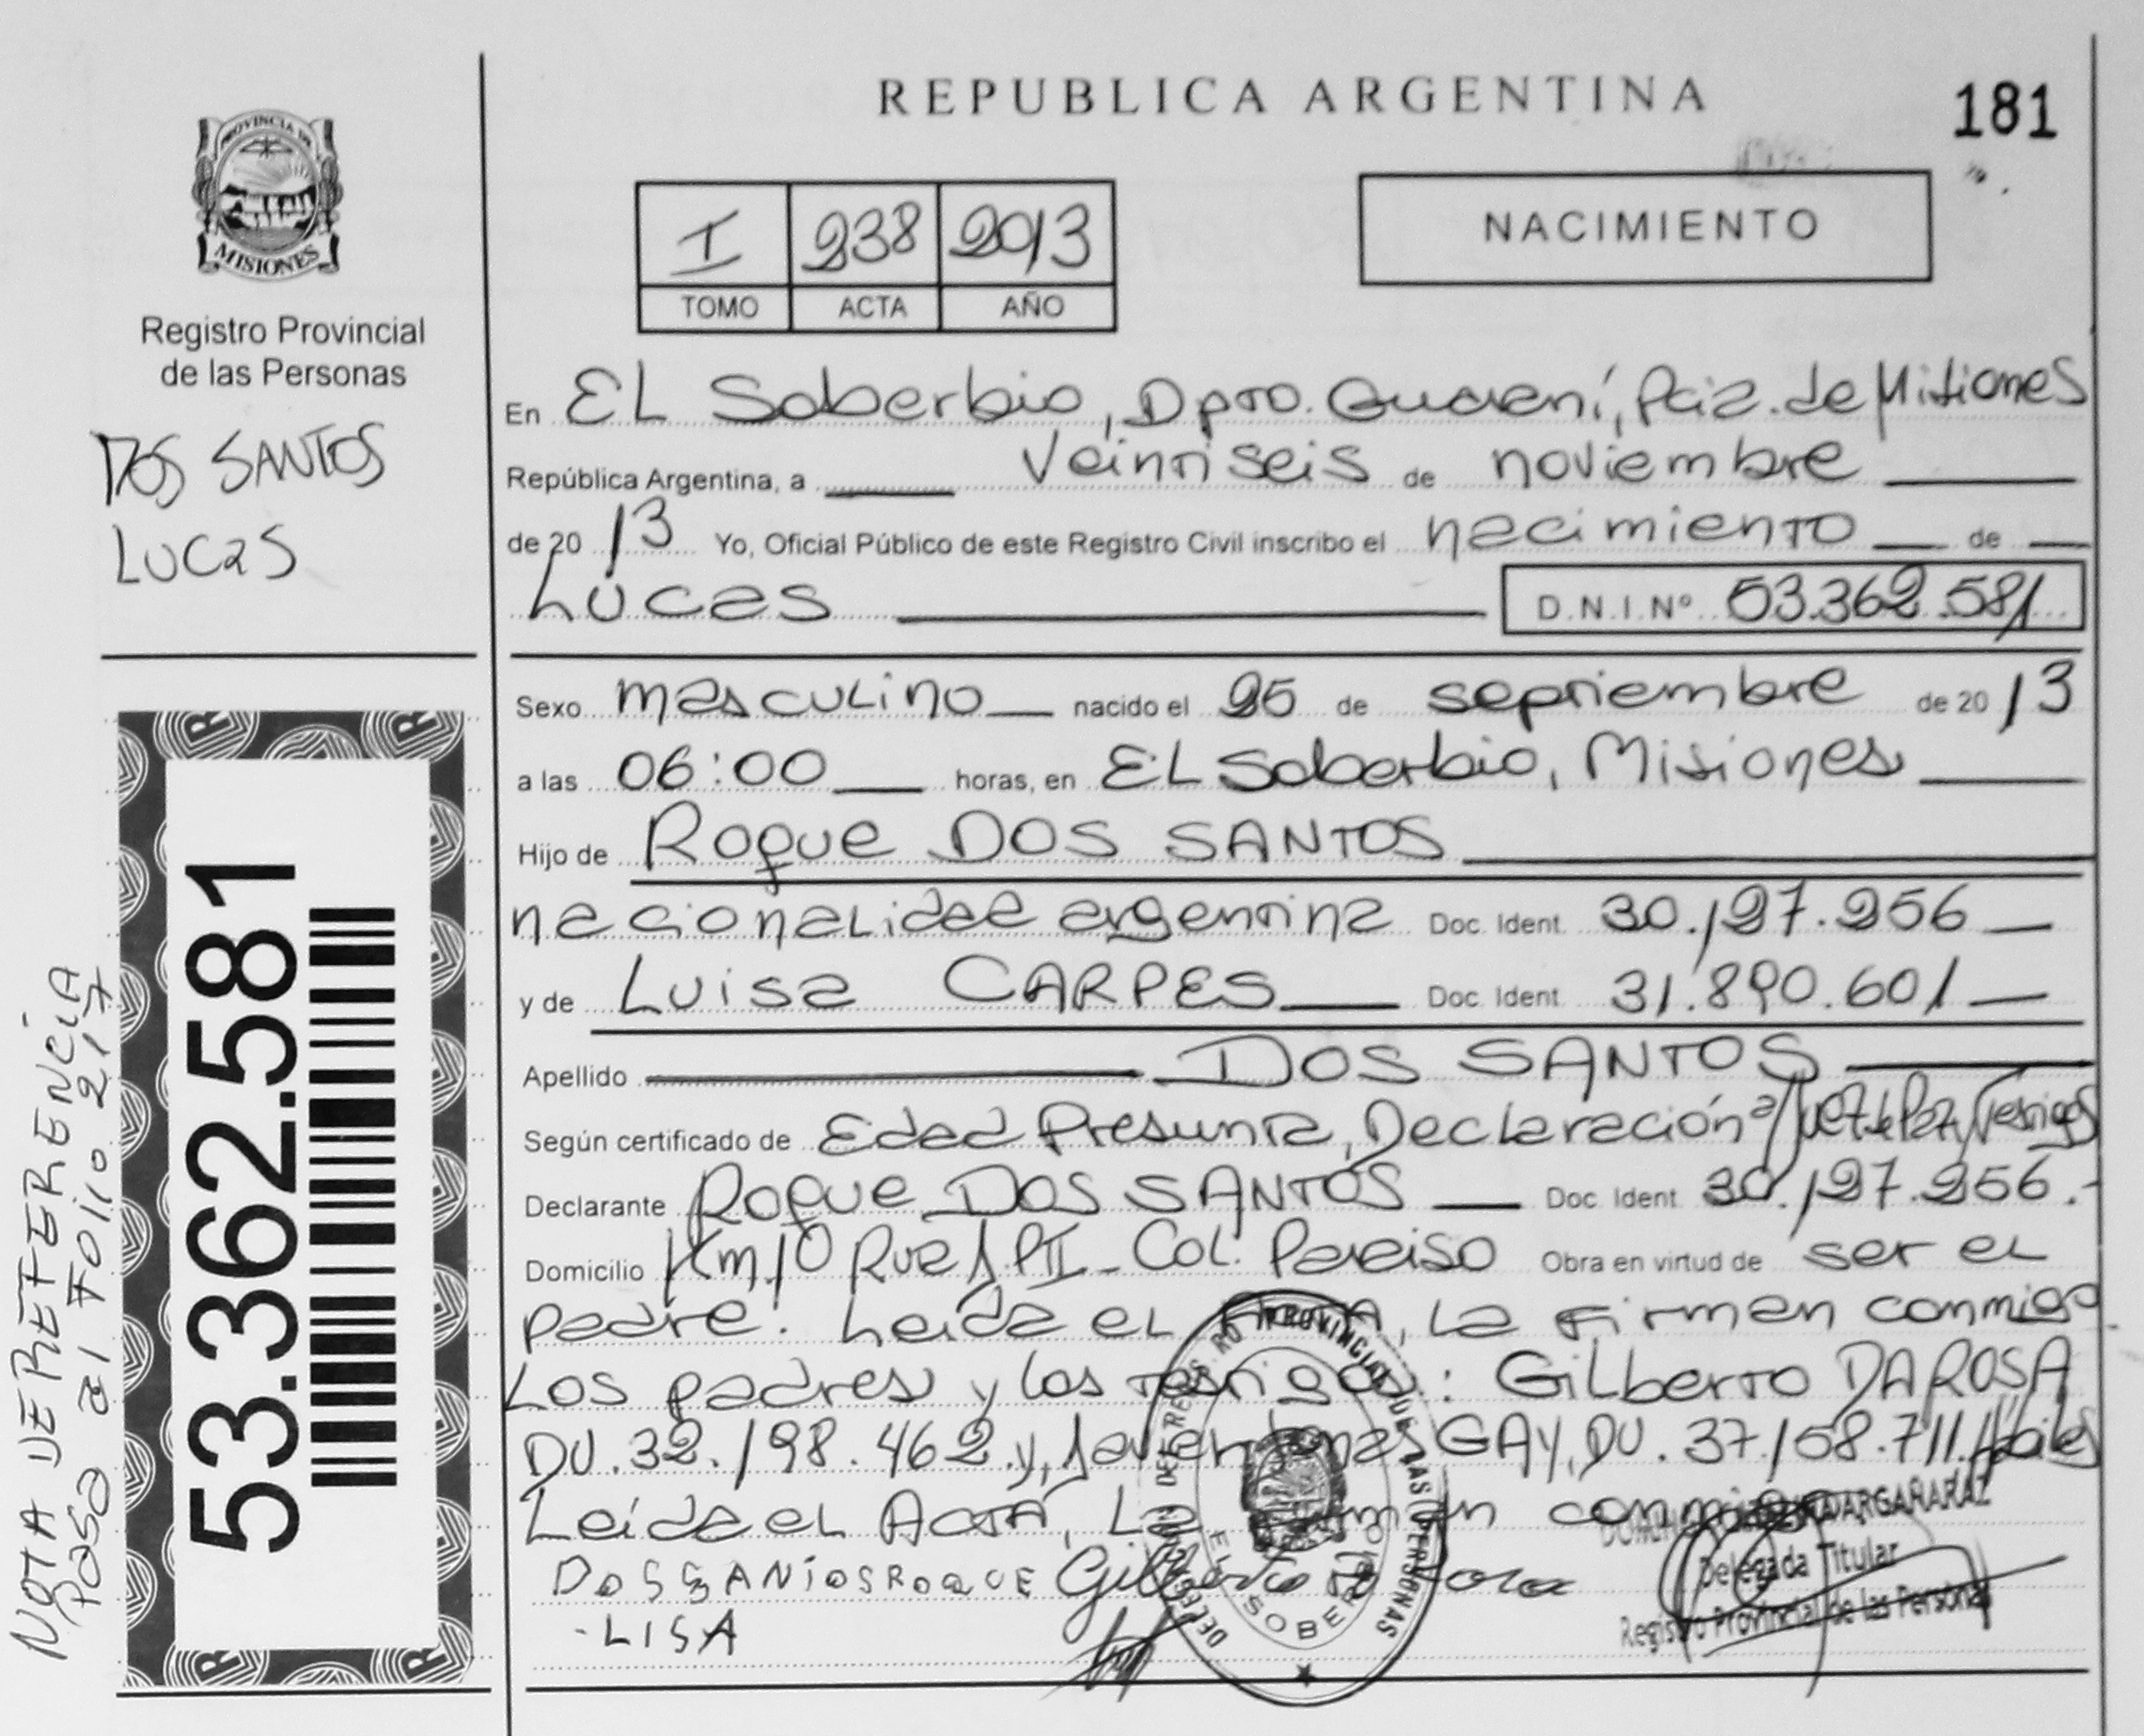 REPUBLICA ARGENTINA
181
PROVINCIA DE
MISIONES
Registro Provincial
de las Personas
DOS SANTOS
LUCAS
I 238 2013
TOMO ACTA AÑO
NACIMIENTO
En EL Soberbio, Dpto. Guaraní, Pcia. de Misiones
República Argentina, a Veintiseis de noviembre
de 2013 Yo, Oficial Público de este Registro Civil inscribo el nacimiento de
Lucas D.N.I.Nº 53.362.581
Sexo masculino nacido el 25 de septiembre de 2013
a las 06:00 horas, en EL Soberbio, Misiones
Hijo de Roque DOS SANTOS
nacionalidad argentina Doc. Ident. 30.127.256
y de Luisa CARPES Doc. Ident. 31.890.601
Apellido DOS SANTOS
Según certificado de Edad Presunta, Declaración Juez de Paz, Testigos
Declarante Roque DOS SANTOS Doc. Ident. 30.127.256.-
Domicilio Km10 Ruta PII - Col. Paraiso Obra en virtud de ser el
padre. Leida el Acta, La firman conmigo
Los padres y los testigos: Gilberto DA ROSA
DU. 32.198.462 y, GAY, DU. 37.158.711.
Leida el Acta, La firman conmigo
DOSSANTOSROQUE Gilberto Da Rosa
-LISA
ARGAÑARAZ
Delegada Titular
Registro Provincial de las Personas
DEL REGISTRO PROVINCIAL DE LAS PERSONAS
EL SOBERBIO
53.362.581
NOTA DE REFERENCIA
Pasa al Folio 217